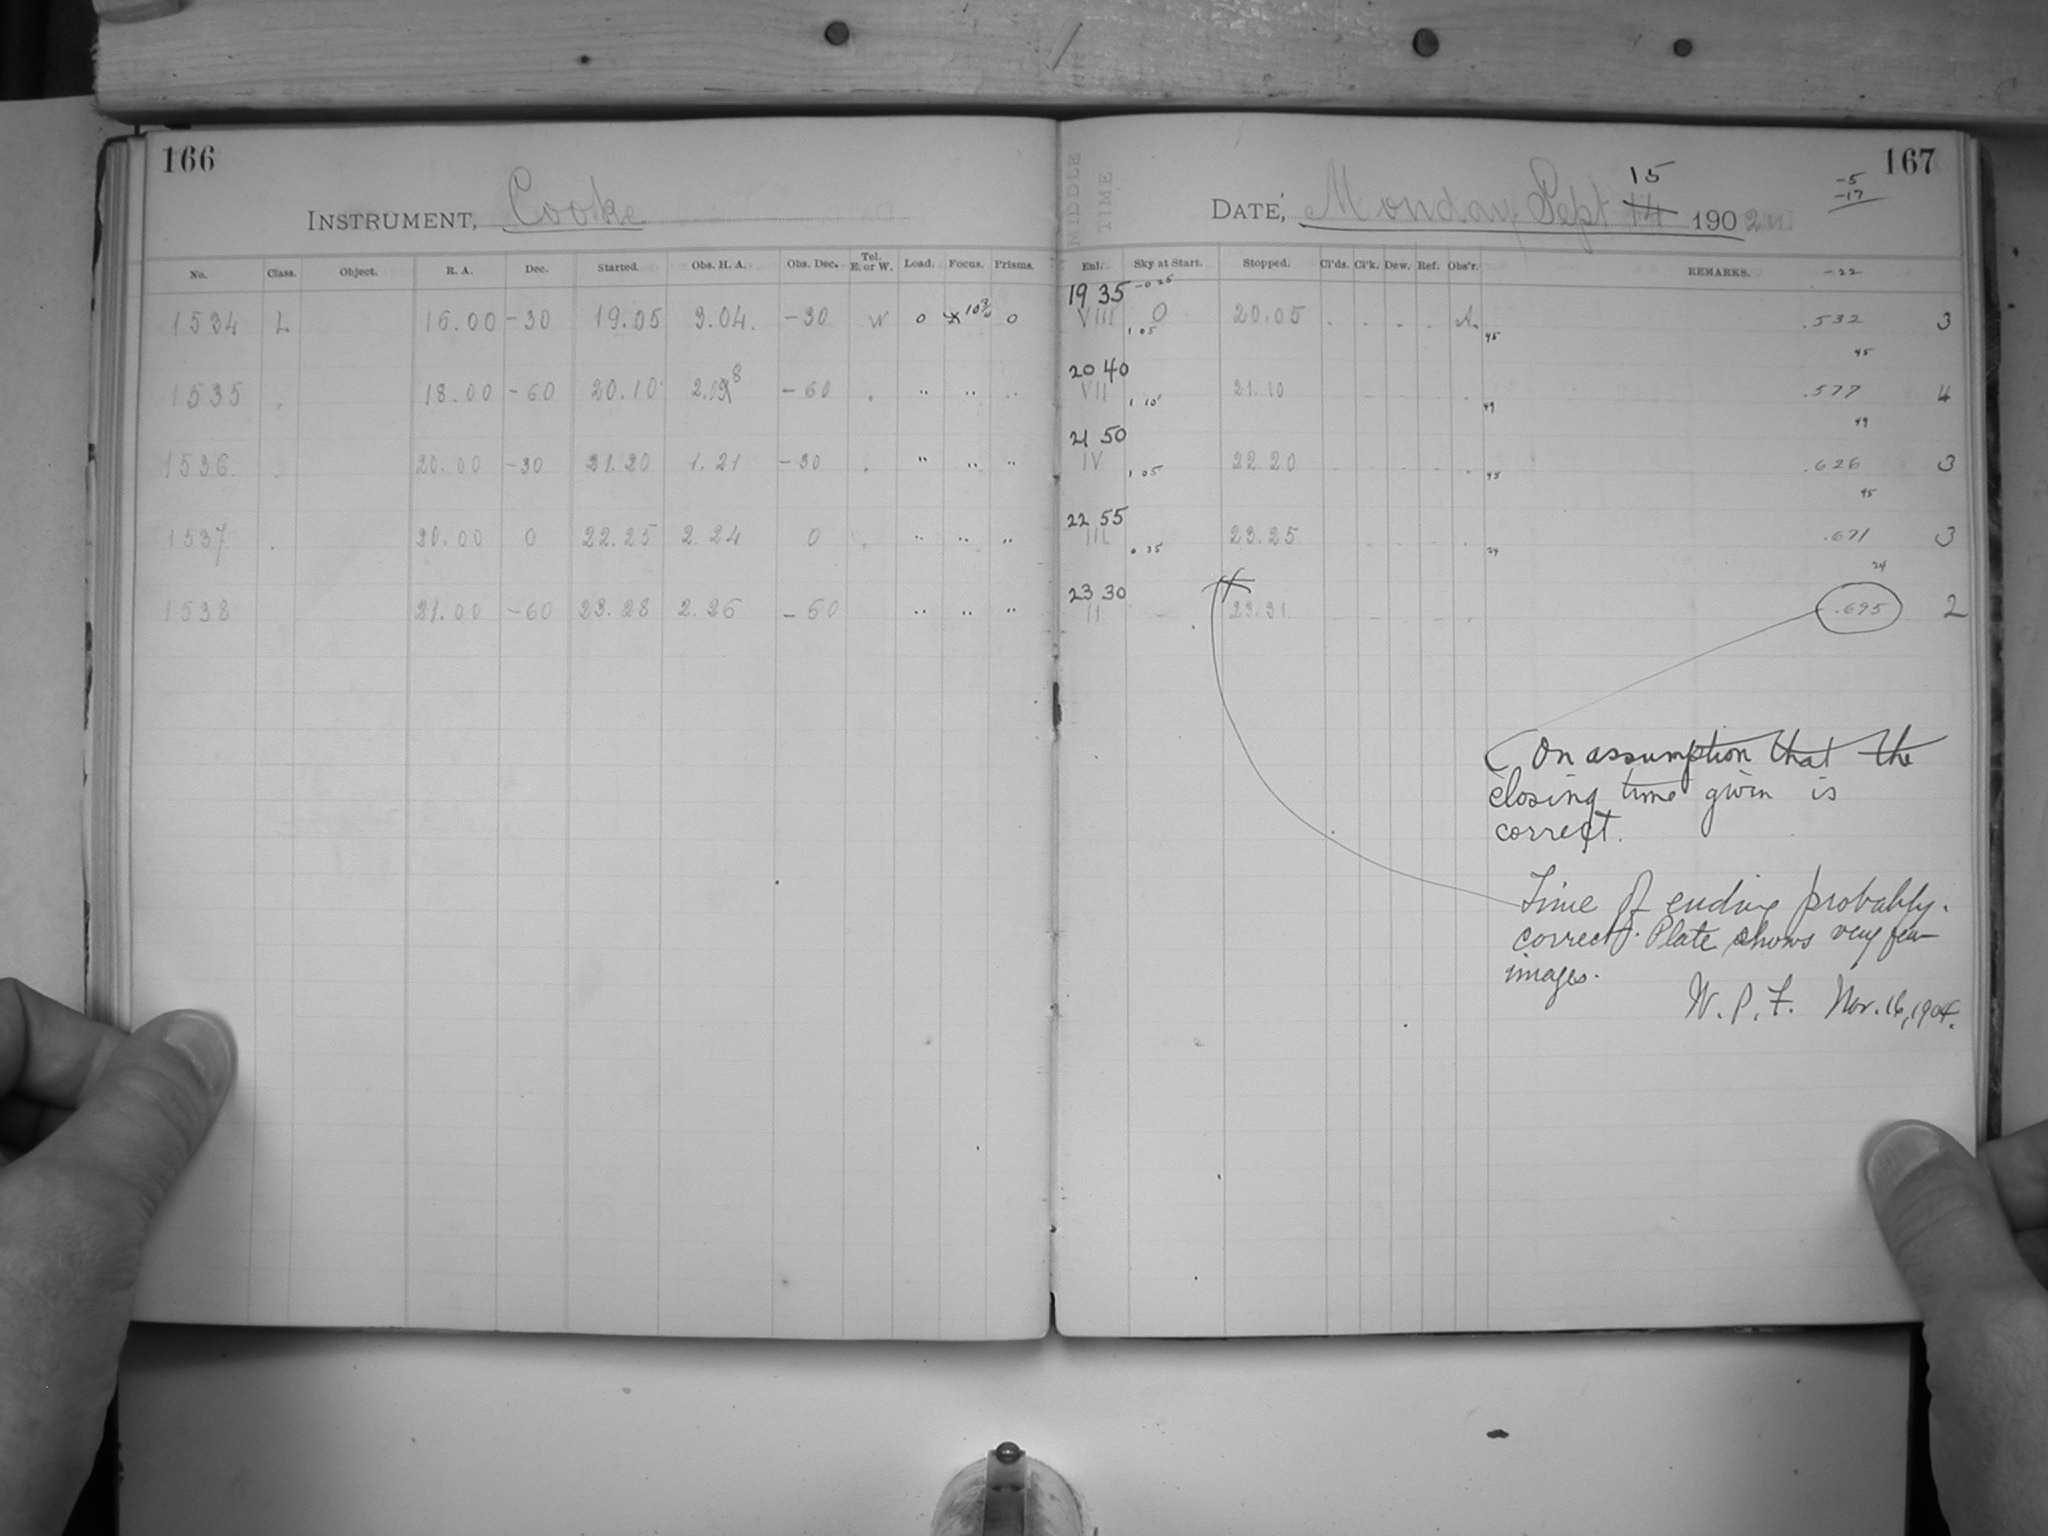 166
INSTRUMENT, Cooke
No. Class. Object. R. A. Dec. Started. Obs. H. A. Obs. Dec. Tel. E. or W. Load. Focus. Prisms.
1534 L 16.00 -30 19.05 3.04. -30 W 0 0
1535 18.00 -60 20.10 -60 " " "
1536. 20.00 -30 21.20 1.21 -30 " " "
1537 20.00 0 22.25 2.24 0 " " "
1538 21.00 -60 23.28 2.26 -60 " " "
167
MIDDLE TIME
15
DATE, Monday Sept 14 1902
-5
-17
-22
Enl. Sky at Start. Stopped. Cl'ds. Cl'k. Dew. Ref. Obs'r. REMARKS.
19 35 -0 25
VIII 0 20.05 A. .532 3
1 05 45 45
20 40
VII 21.10 .577 4
1 10 49 49
21 50
IV 22 20 .626 3
1 05 45 45
22 55
III 23.25 .671 3
0 35 24 24
23 30
II - 23.31. .695 2
On assumption that the
closing time given is
correct.
Time of ending probably
correct. Plate shows very few
images.
W. P. F. Nov. 16, 1904.